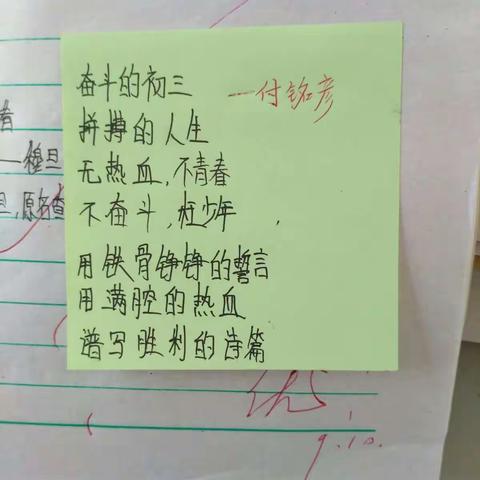 奋斗的初三 —付铭彦
拼搏的人生
无热血,不青春
不奋斗,枉少年,
用铁骨铮铮的誓言
用满腔的热血
谱写胜利的诗篇
者
——穆旦
旦,原名查
优
9.10.